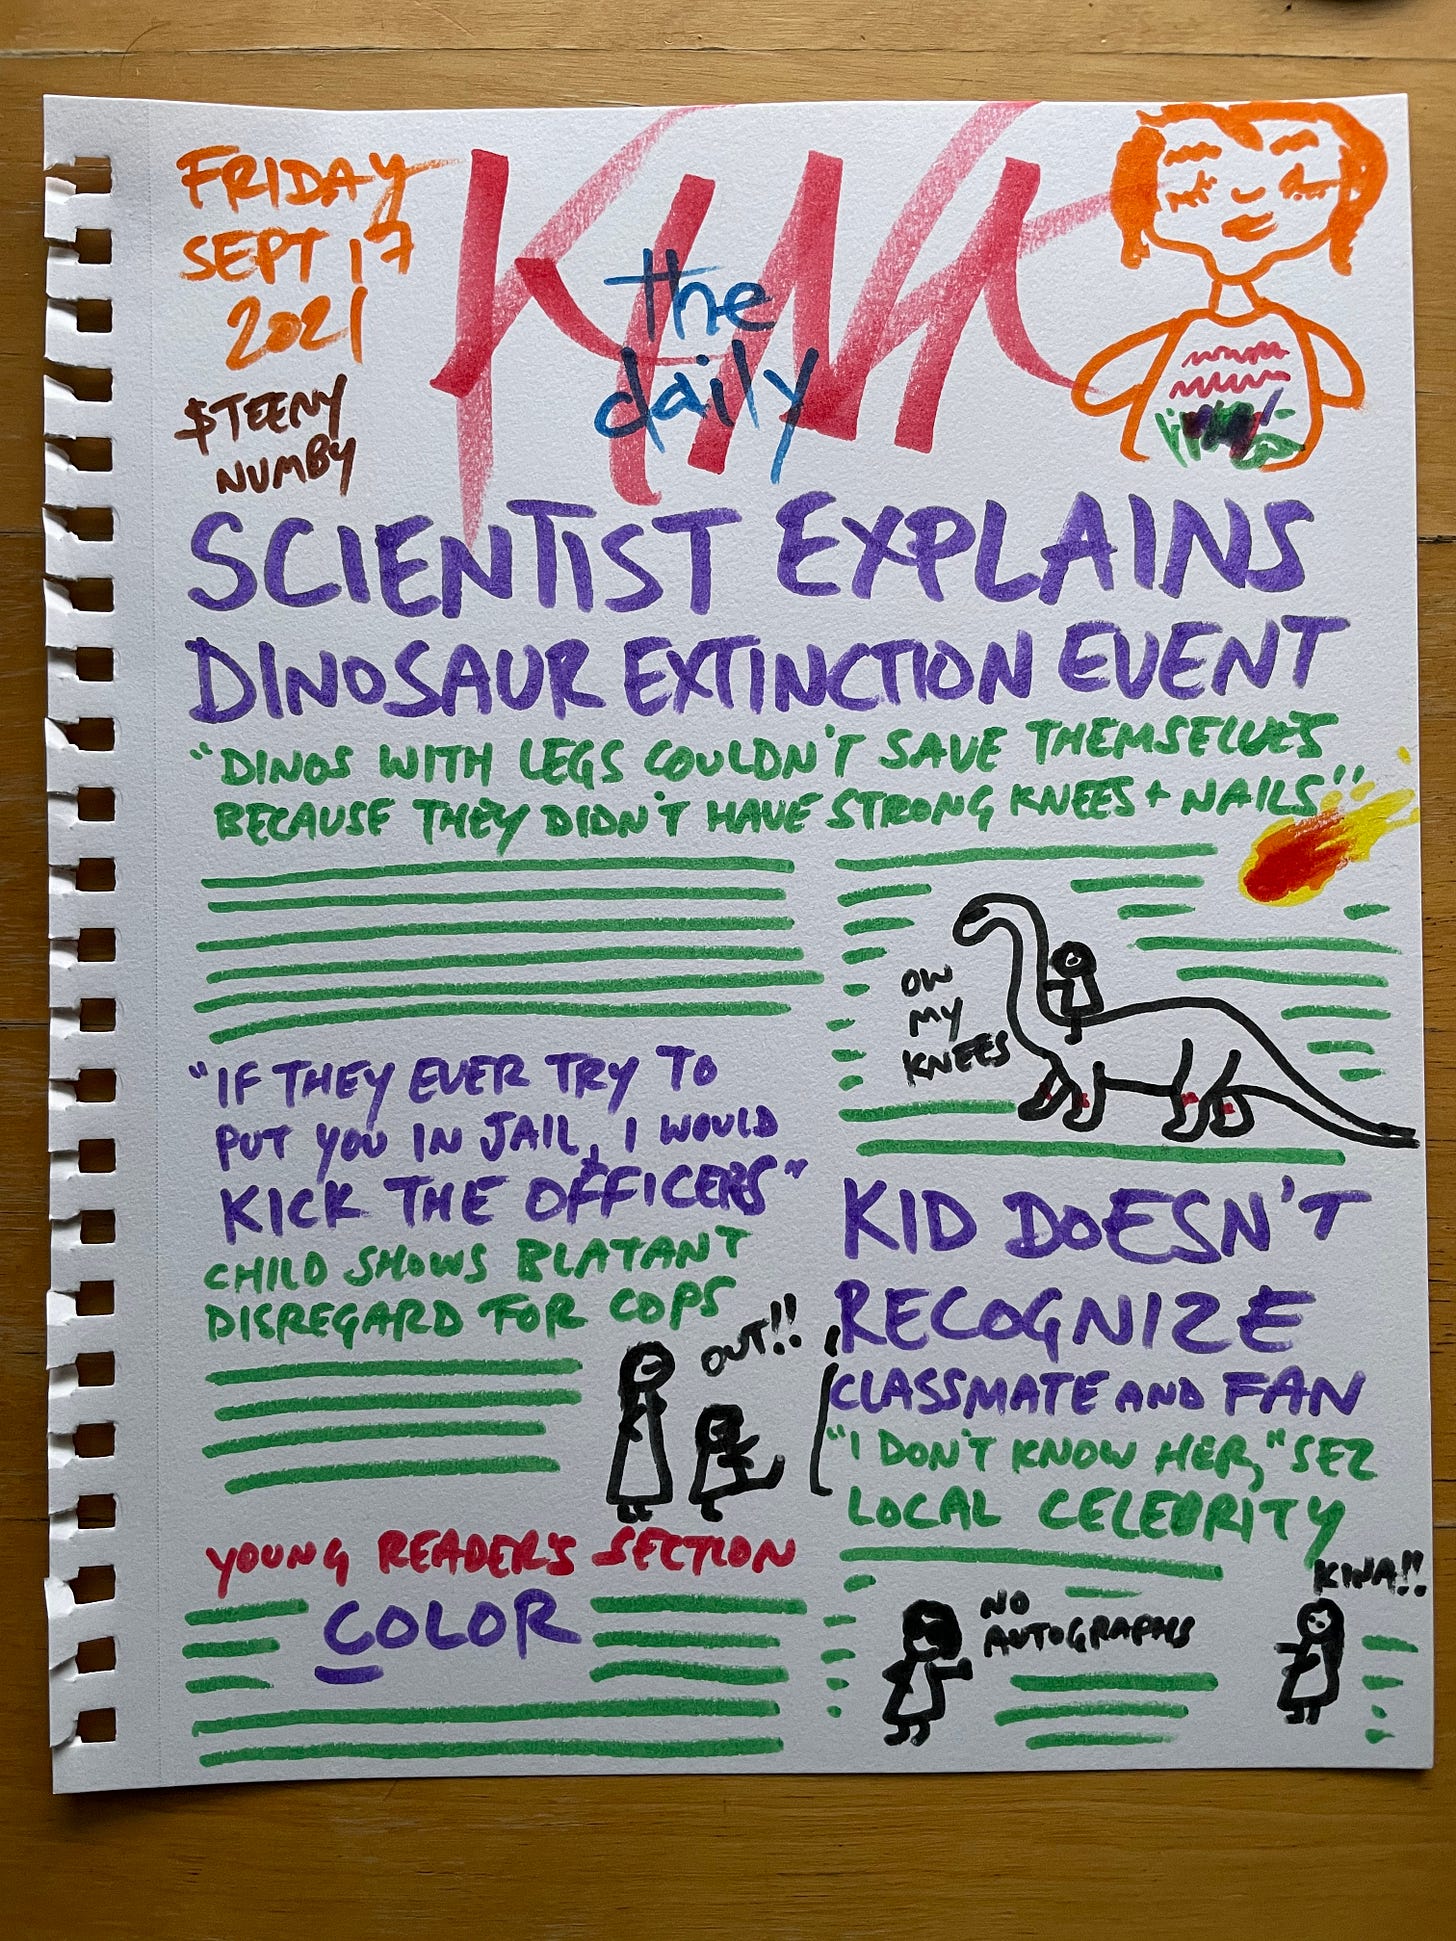 FRIDAY
SEPT 17
2021
$TEENY
NUMBY
the
daily
KINA
SCIENTIST EXPLAINS
DINOSAUR EXTINCTION EVENT
"DINOS WITH LEGS COULDN'T SAVE THEMSELVES
BECAUSE THEY DIDN'T HAVE STRONG KNEES + NAILS"
OW
MY
KNEES
"IF THEY EVER TRY TO
PUT YOU IN JAIL, I WOULD
KICK THE OFFICERS"
CHILD SHOWS BLATANT
DISREGARD FOR COPS
OUT!!
YOUNG READER'S SECTION
COLOR
KID DOESN'T
RECOGNIZE
CLASSMATE AND FAN
"I DON'T KNOW HER," SEZ
LOCAL CELEBRITY
NO
AUTOGRAPHS
KINA!!